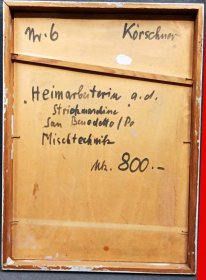 Nr. 6 Körschner
"Heimarbeiterin a. d.
Strickmaschine"
San Benedetto/Po
Mischtechnik
Mk. 800.-